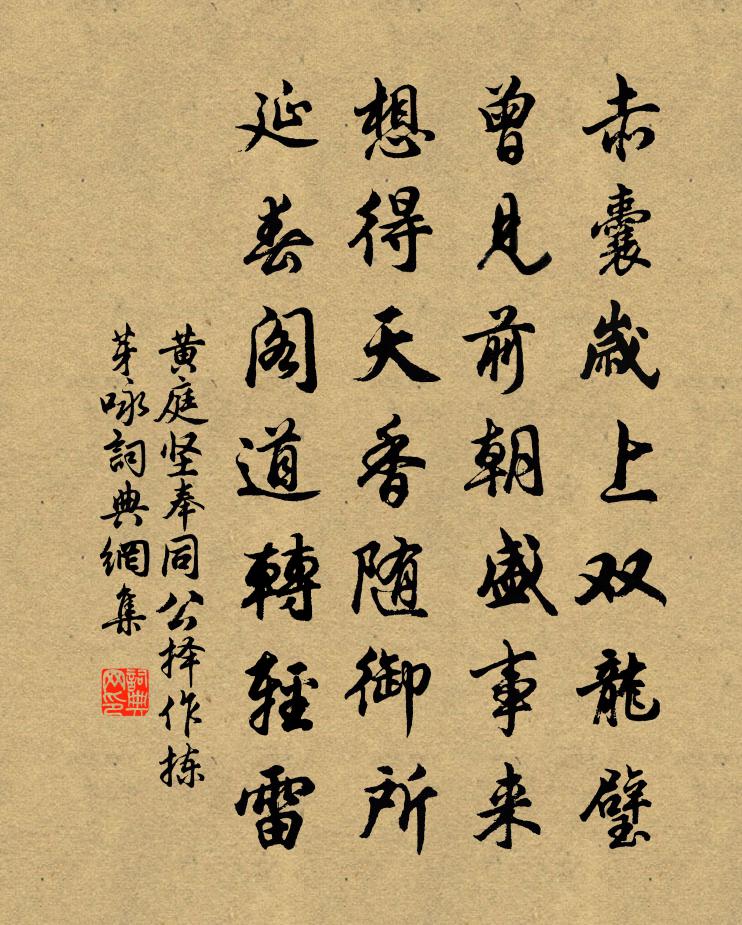 赤囊歳上双龍壁
曾見前朝盛事来
想得天香随御所
延春阁道轉輕雷
黄庭坚奉同公择作拣
芽咏詞典網集
詞典网印